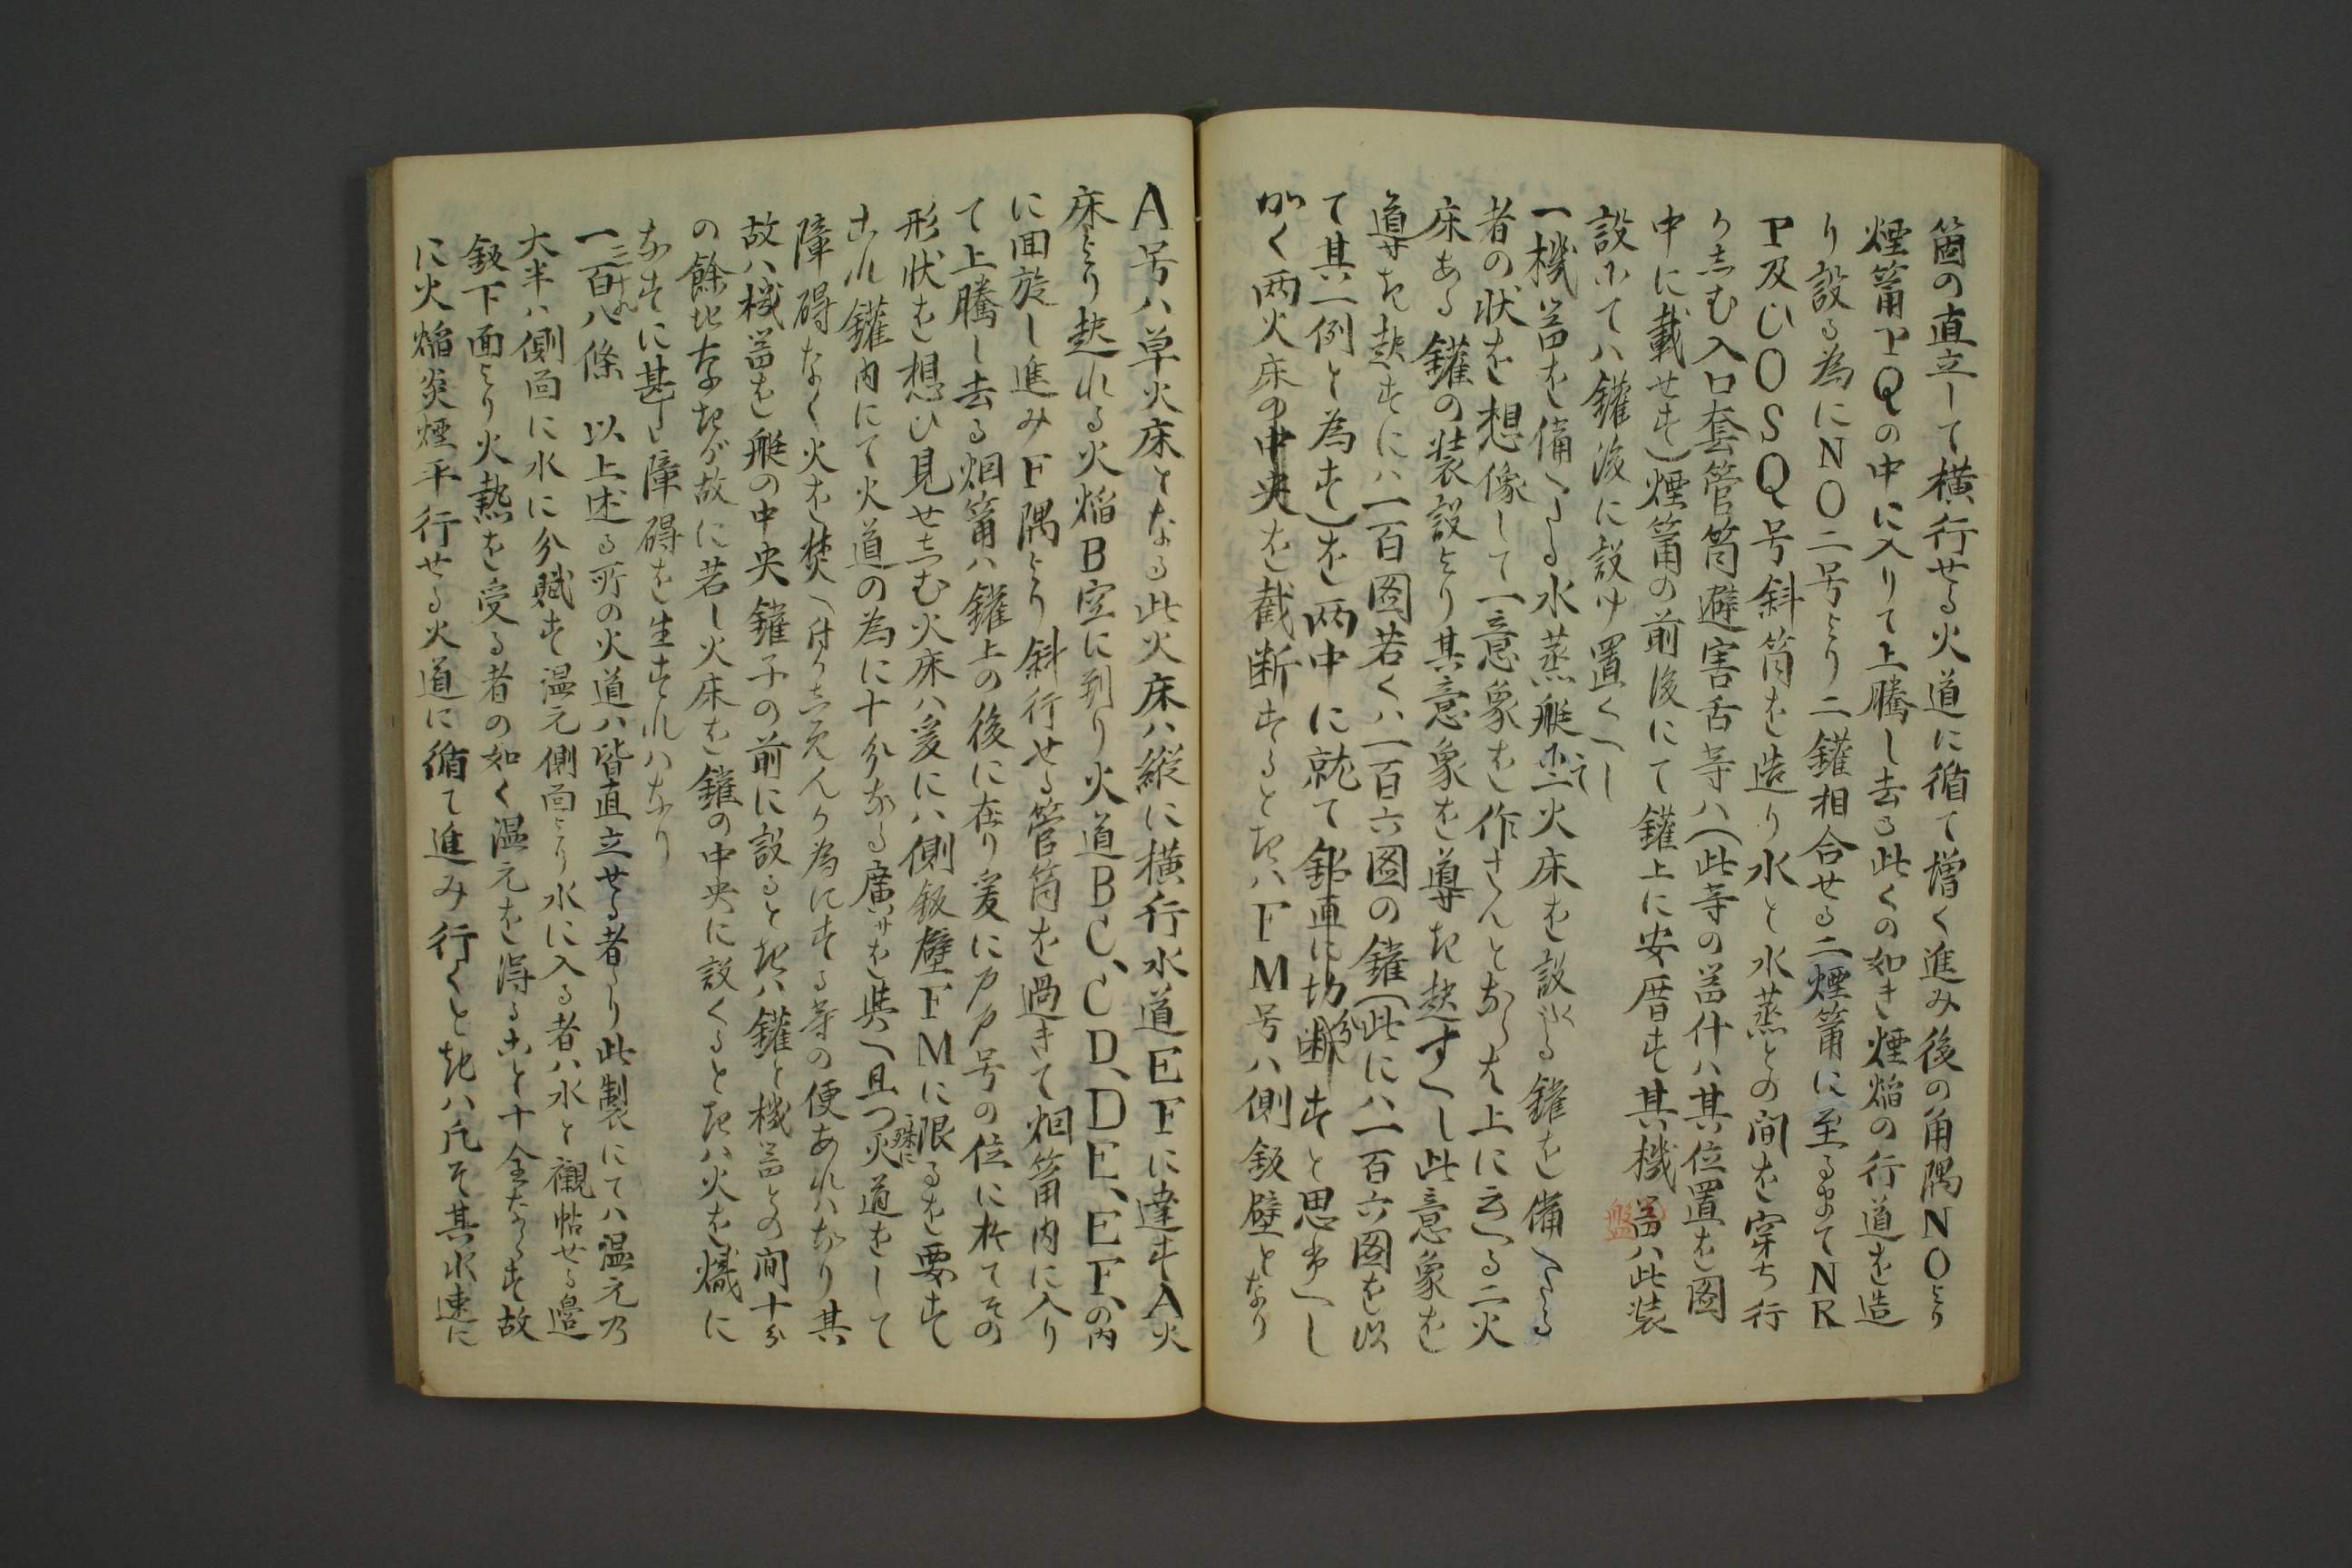 箇の直立して横行せる火道に循て増く進み後の角隅NOより
煙筩PQの中に入りて上騰し去る此くの如き煙焔の行道を造
り設る為にNO二号より二鑵相合せる二煙筩に至るまてNR
P及ひOSQ号斜筒を造り水と水蒸との間を穿ち行
かしむ入口套管筒避害舌等ハ(此等の器什ハ其位置を図
中に載せす)煙筩の前後にて鑵上に安厝す其機器ハ此装
設にてハ鑵後に設け置くへし
一機器を備へたる水蒸艇に二火床を設くる鑵を備へたる
者の状を想像して一意象を作さんとならは上に云へる二火
床ある鑵の装設より其意象を導き起すへし此意象を
導き起すにハ一百図若くハ一百六図の鑵(此にハ一百六図を以
て其一例と為す)を両中に就て鉛直に切断すと思ふへし
かく両火床の中央を截断するときハFM号ハ側鈑壁となり
A号ハ草火床となる此火床ハ縦に横行水道EFに達すA火
床より起れる火焔B空に到り火道BC、CD、DE、EF、の内
に回旋し進みF隅より斜行せる管筒を過きて烟筩内に入り
て上騰し去る烟筩ハ鑵上の後に在り爰に号の位に於てその
形状を想ひ見せしむ火床ハ爰にハ側鈑壁FMに限るを要す
これ鑵内にて火道の為に十分なる廣サを與へ且つ火道をして
障碍なく火を焚へ付かしめんか為にする等の便あれハなり其
故ハ機器を艇の中央鑵子の前に設るときハ鑵と機器との間十分
の餘地なきが故に若し火床を鑵の中央に設くるときハ火を熾に
なすに甚しき障碍を生すれハなり
一百八條 以上述る所の火道ハ皆直立せる者なり此製にてハ温元乃
大半ハ側面に水に分賦す温元側面より水に入る者ハ水と襯帖せる邉
鈑下面より火熱を受る者の如く温元を得ること十全ならす故
に火焔炎煙平行せる火道に循て進み行くときハ凡そ其水速に